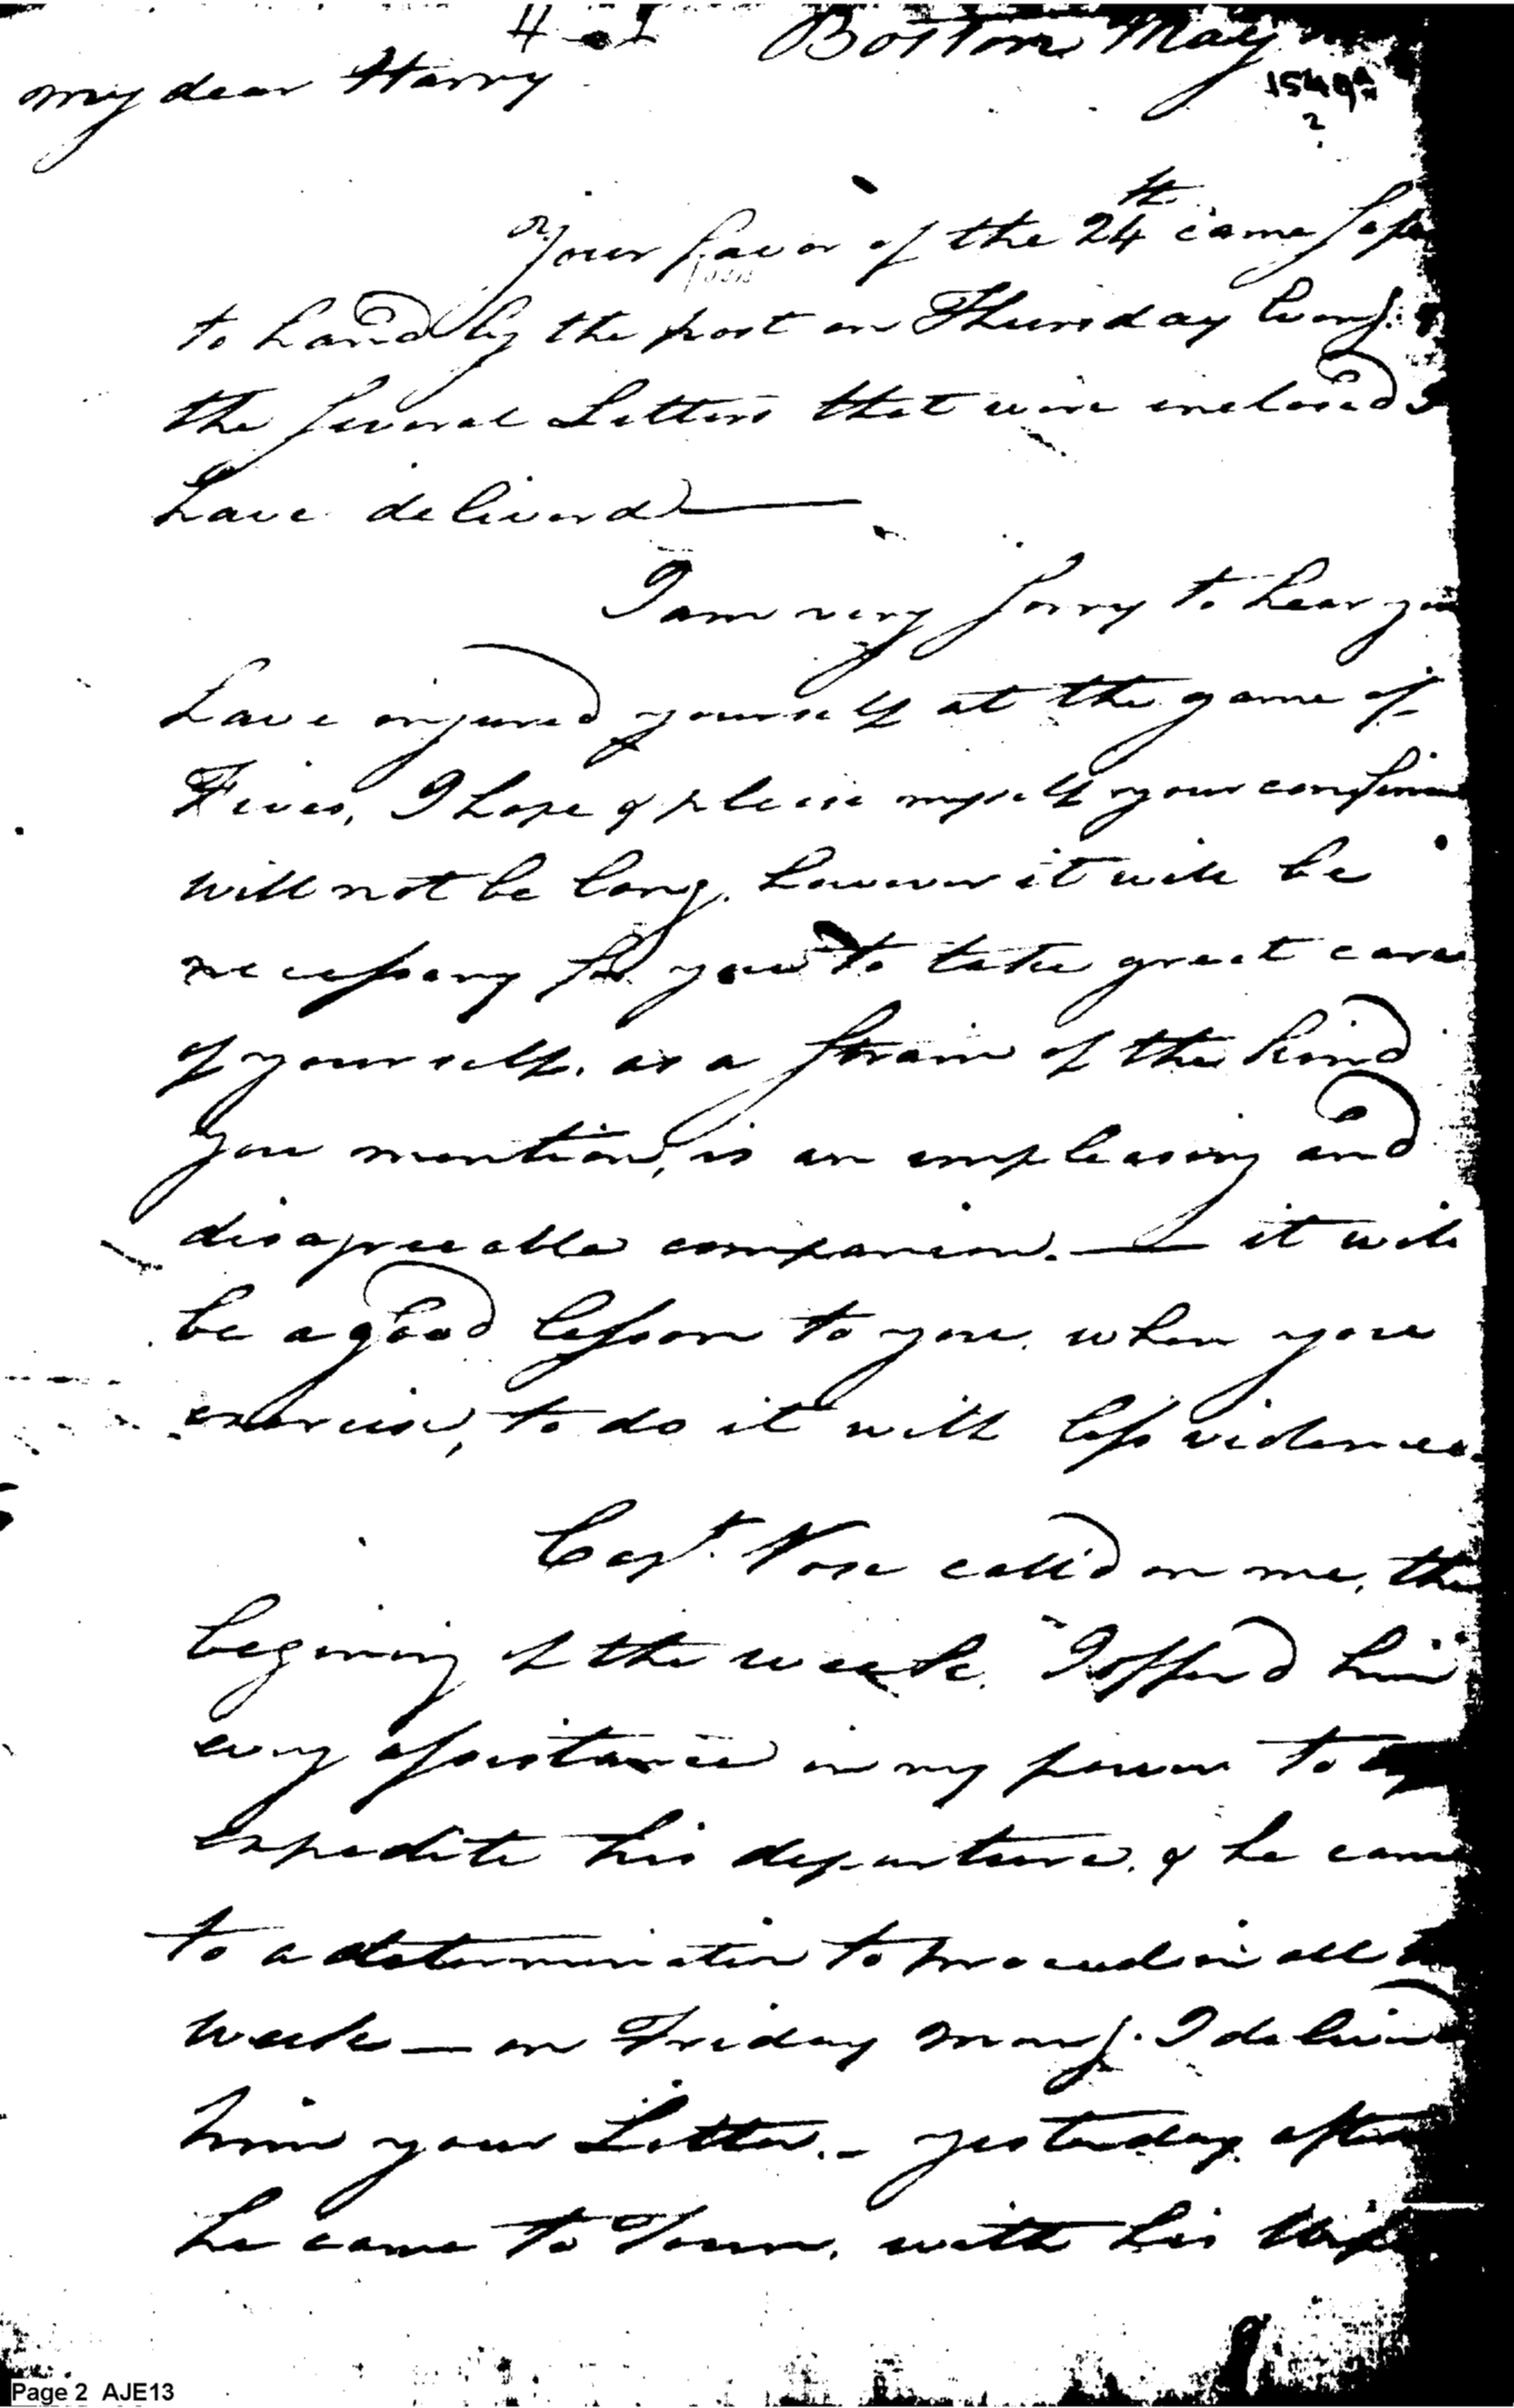 Boston May
my dear Harry
Your favor of the 24th came safe
to hand by the post on Thursday Eveng. &
the several Letters that were enclosed I
have deliverd —
I am very sorry to hear you
have injured yourself at the game of
Fives, I hope & please myself your
will not be long, however it will be
necessary for you to take great care
of yourself, as a strain of the kind
you mention, is an unpleasing and
disagreeable companion. — it will
be a good lesson to you, when you
exercise, to do it with less violence.
Capt. Nose call'd on me, the
begining of the week. I offerd him
every assistance in my power to
expedite his departure, & he came
to a determination to proceed in all
week — on Friday morng. I deliverd
him your Letter. – yesterday after
he came to Town, with his Wife
Page 2 AJE13